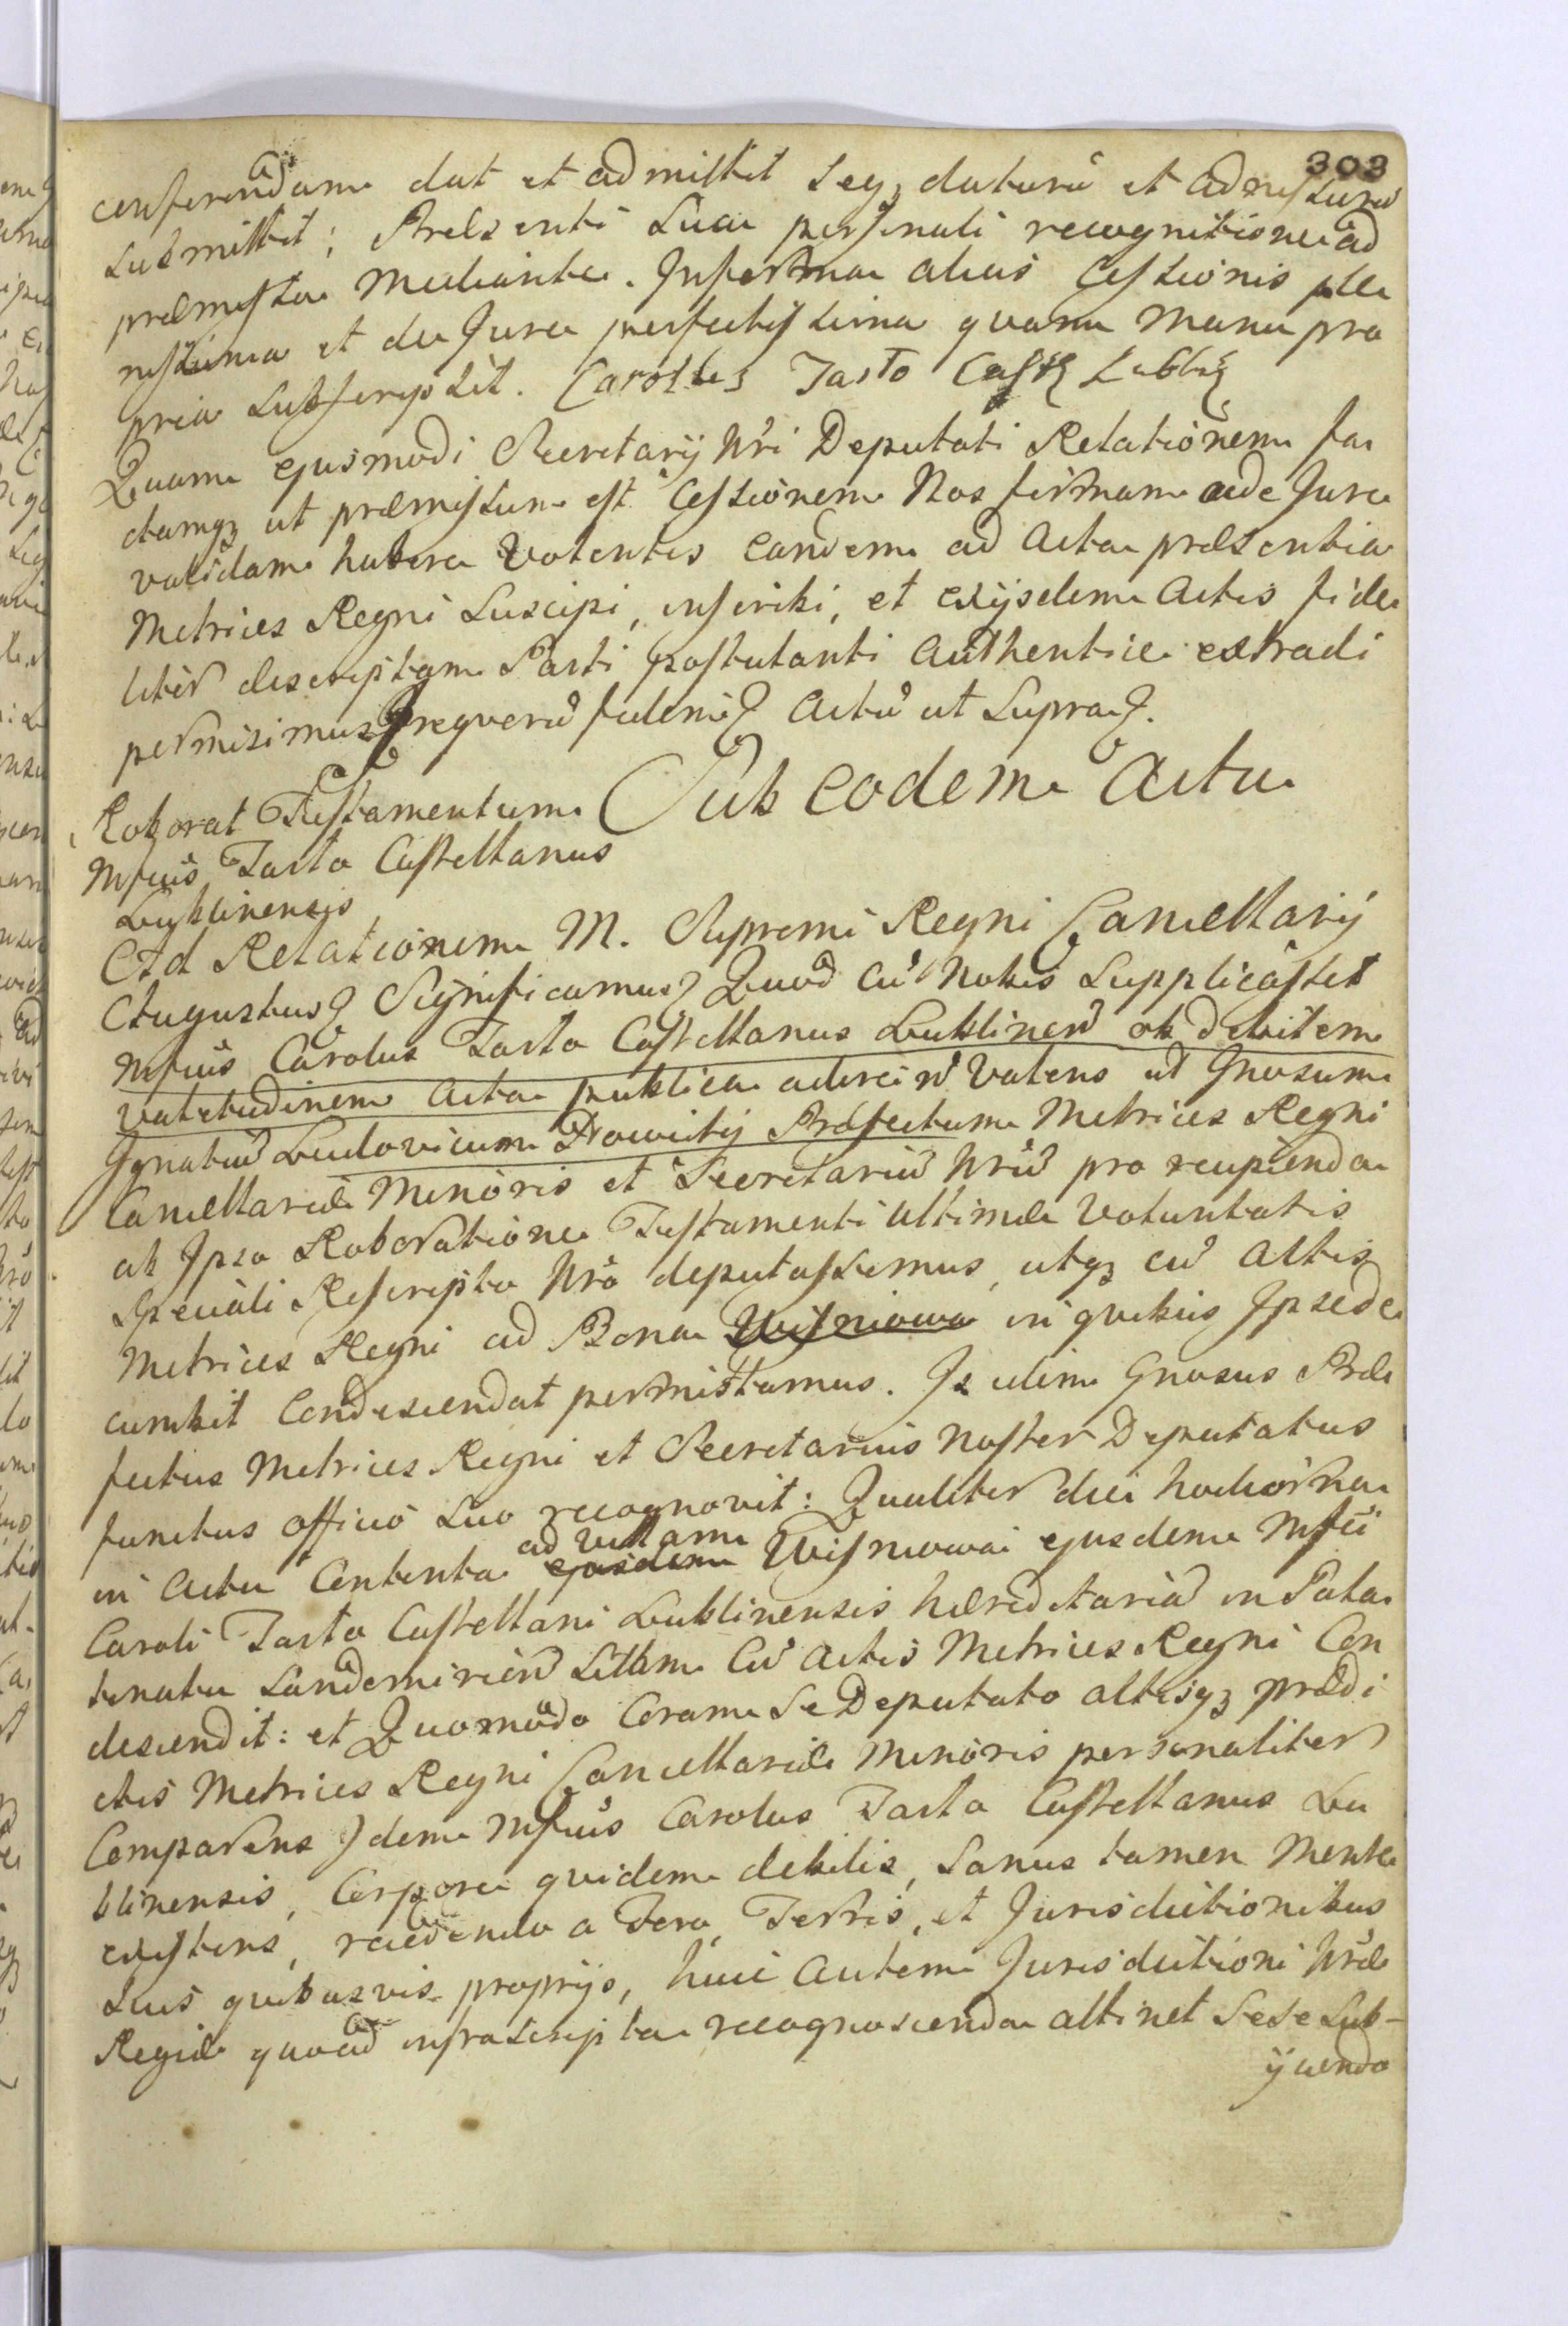 303
conferendam dat et admittit seqz daturũ et admissurũ
submittit; Præsenti sua personali recognitione ad
præmissa mediante. In forma alias Cessionis ple
nissima et de Jure perfectissima quam manu pro
pria subscripsit. Carolus Tarło
Quam ejusmodi Secretarij Nr̃i Deputati Relationem fa
ctamqz ut præmissum est Cessionem Nos firmam ac de Jure
validam habere volentes eandem ad Acta præsentia
Metrices Regni suscipi, inscribi, et ex ijsdem Actis fide
liter descriptam Parti postulanti authentice extradi
permisimus. In quorũ fidem Actũ ut supra.
Roborat Testamentum Sub eodem Actu
Mfcus Tarło Castellanus
Lublinensis
Ad Relationem M. Supremi Regni Cancellarij
Augustus Significamus Quod cũ Nobis supplicasset
Mfcus Carolus Tarło Castellanus Lublinen̄ ob debilem
valetudinem Acta publica adire ñ valens ut Gnosum
Ignatiũ Ludovicum Præfectum Metrices Regni
Cancellariæ Minoris et Secretariũ Nrũ pro recipienda
ab Ipso Roboratione Testamenti ultimæ voluntatis
speciali Rescripto Nro deputassemus, utqz cũ Actis
Metrices Regni ad Bona Wisniowa in quibus Ipse de
cumbit condescendat permittamus. Is idem Gnosus Præ
fectus Metrices Regni et Secretarius Noster Deputatus
functus officio suo recognovit: Qualiter die hodierna
in Actu Contenta ejusdem ad villam Wisniowa ejusdem Mfci
Caroli Tarło Castellani Lublinensis hæreditariã in Pala
tinatu Sandomirien̄ sitam Cũ Actis Metrices Regni Con
descendit: et Quomodo Coram se Deputato Actisqz prædi
ctis Metrices Regni Cancellariæ Minoris personaliter
Comparens Idem Mfcus Carolus Tarło Castellanus Lu
blinensis, Corpore quidem debilis, sanus tamen mente
existens, recedendo a Foro, Terris, et Jurisdictionibus
suis quibusvis proprijs, huic autem Jurisdictioni Nræ
Regiæ quoad infrascripta recognoscenda attinet sese sub-
ijciendo